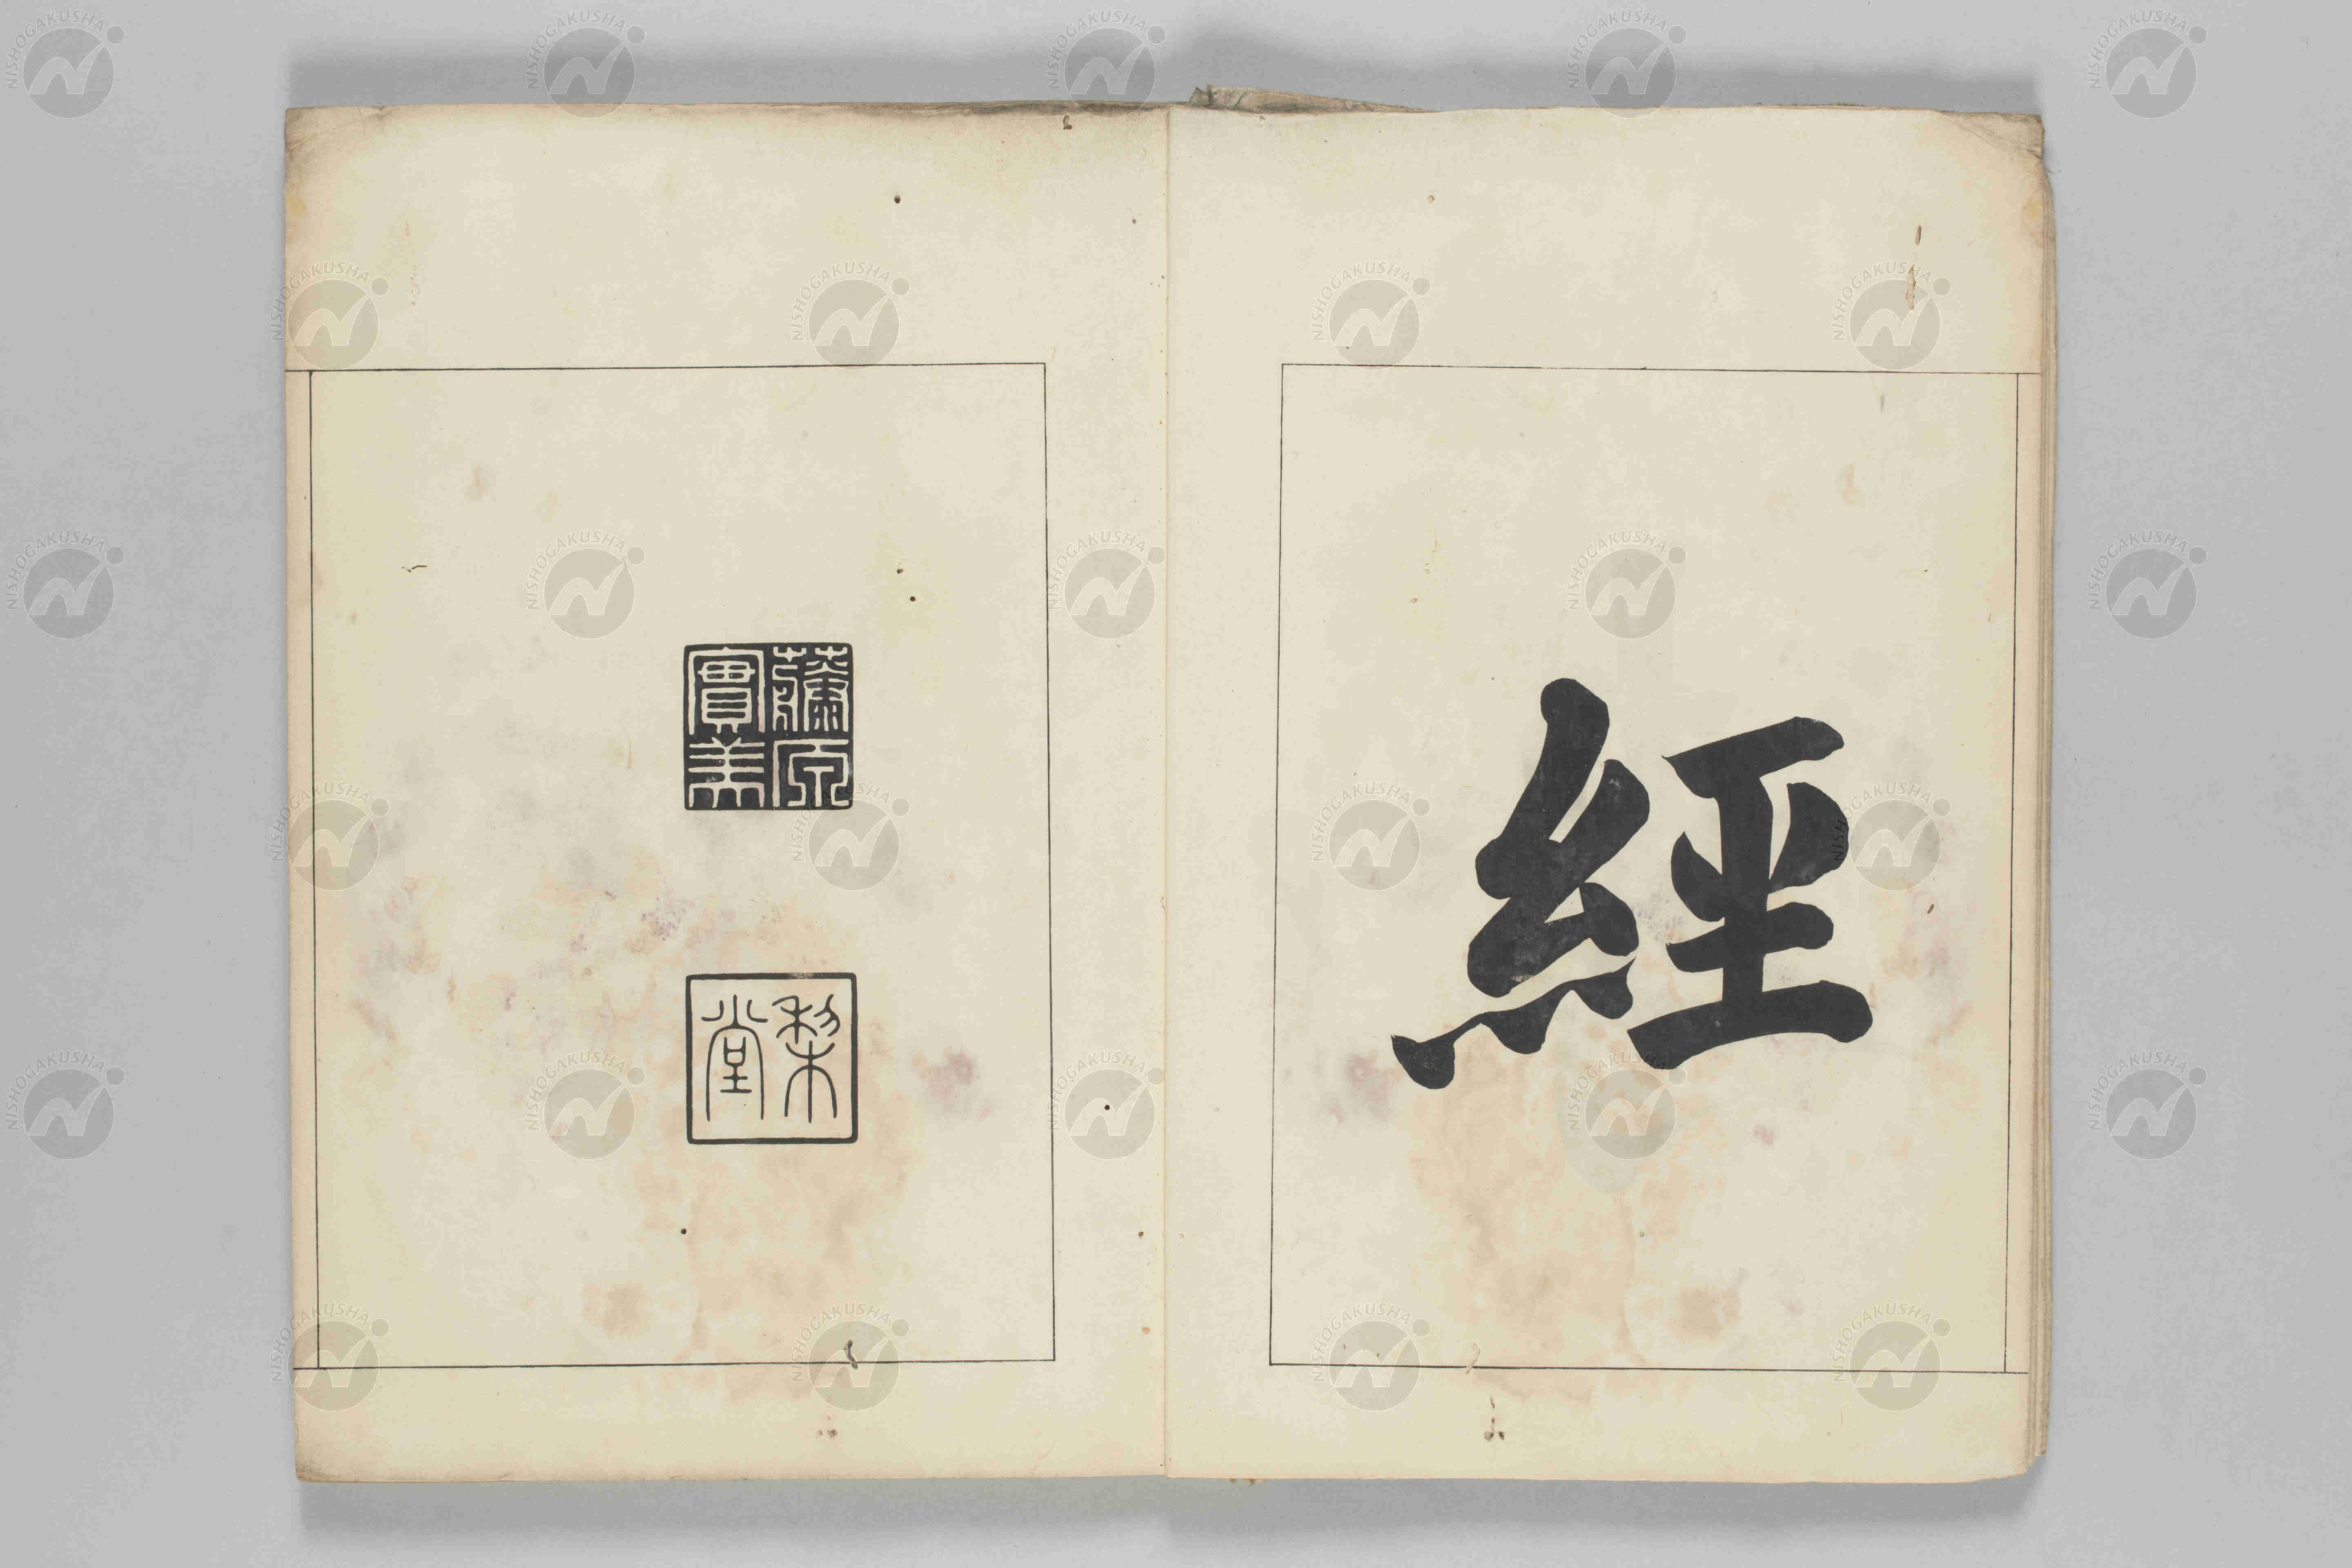 經
藤原實美
梨堂
NISHOGAKUSHA